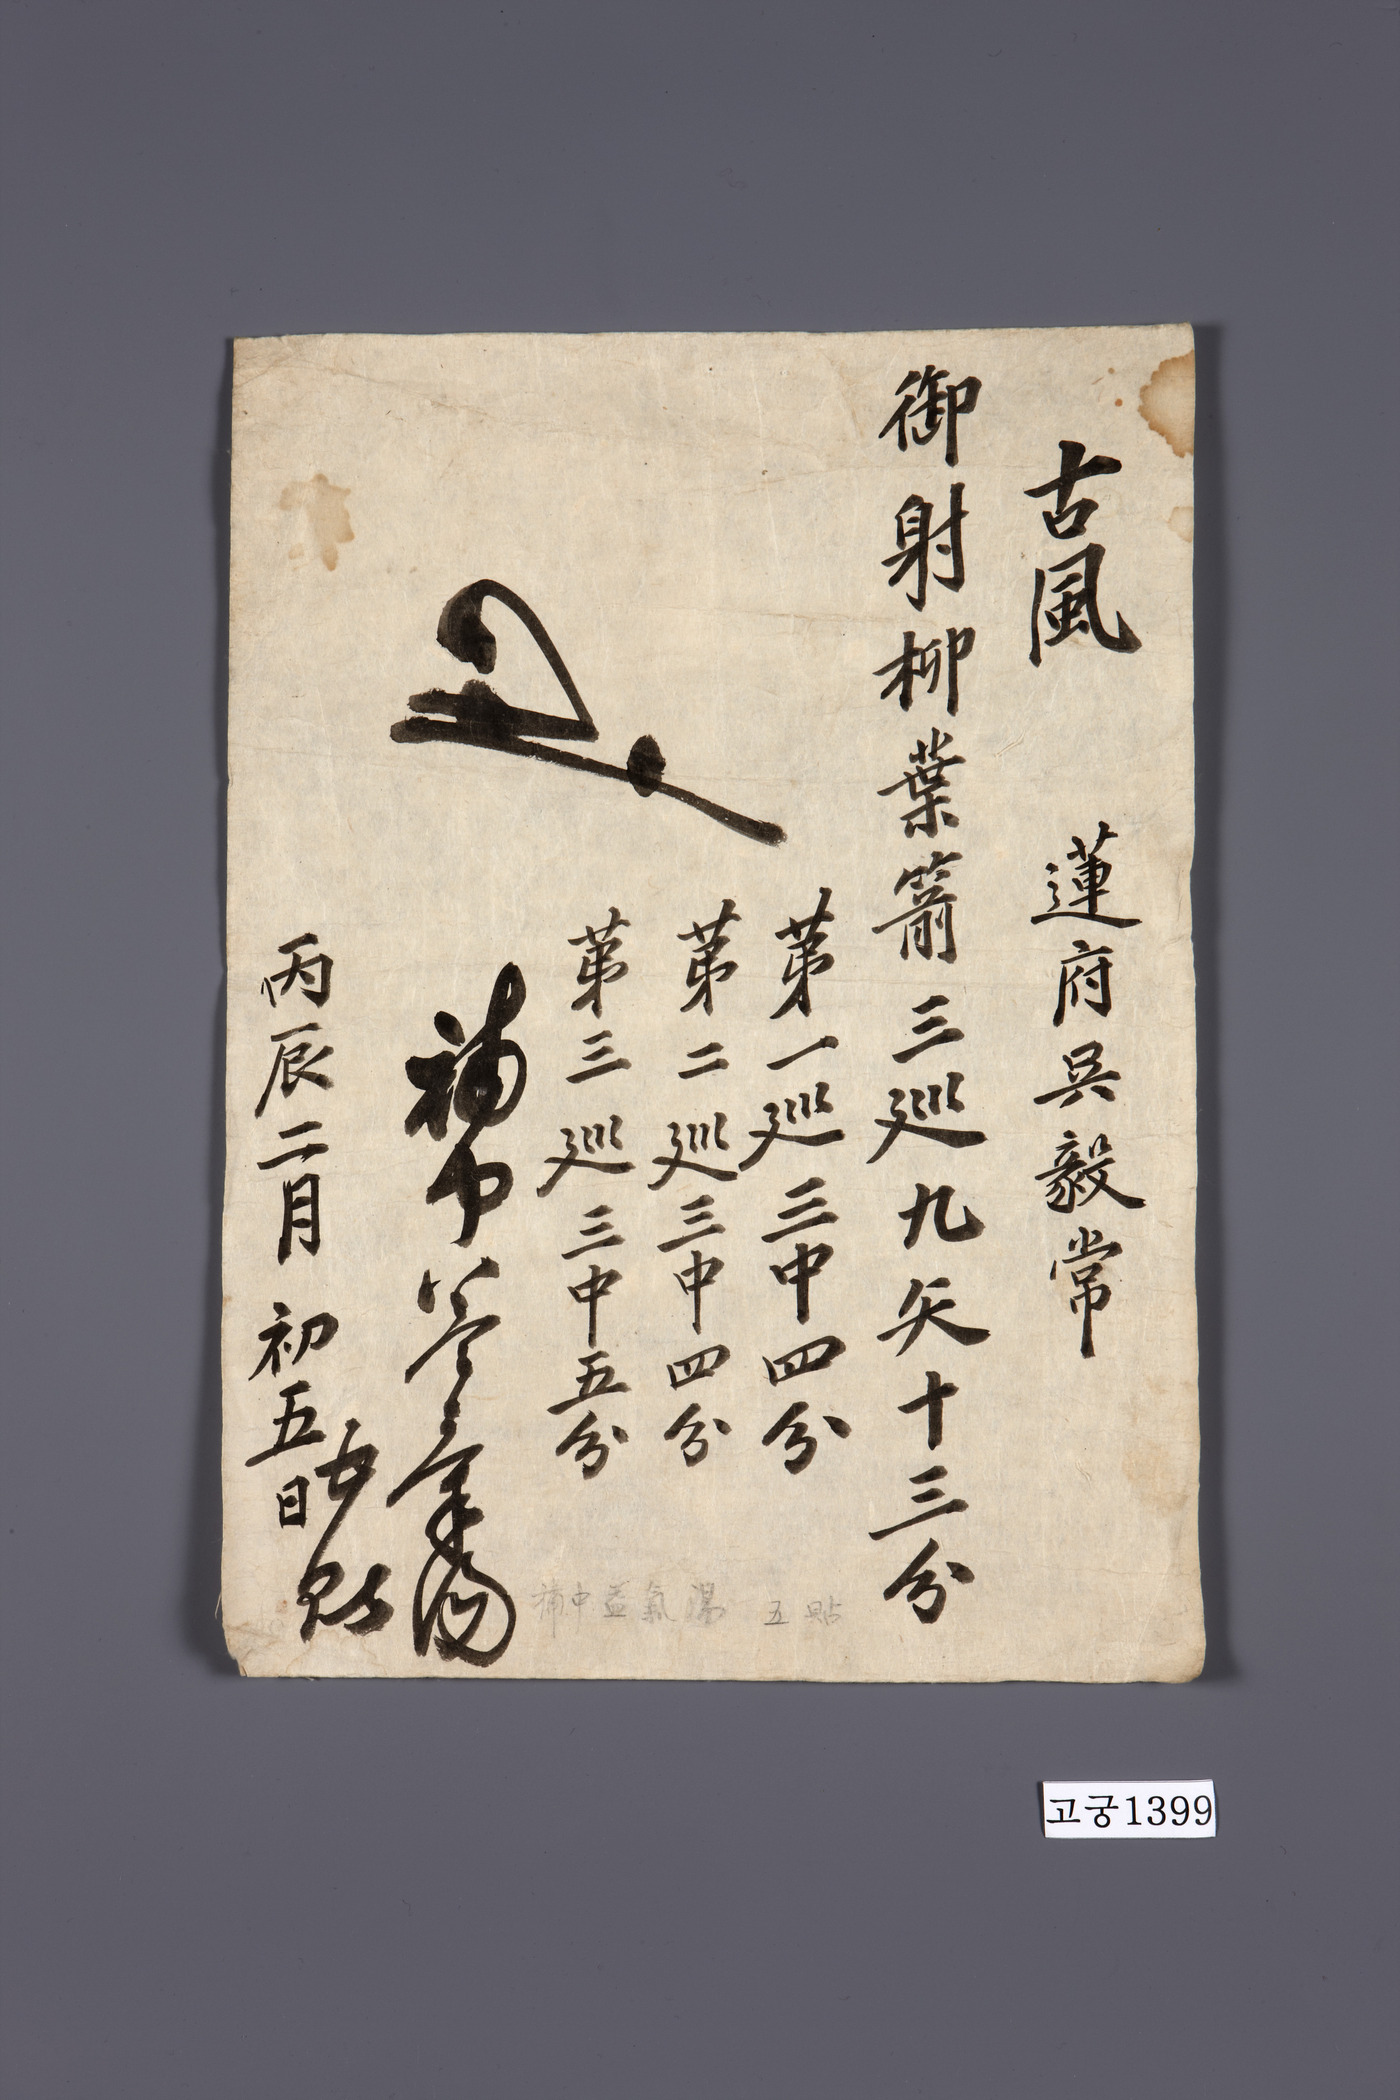 古風 蓮府吳毅常
御射柳葉箭三巡九矢十三分
第一巡三中四分
第二巡三中四分
第三巡三中五分
補中益氣湯
五貼
丙辰二月初五日
補中益氣湯 五貼
고궁1399